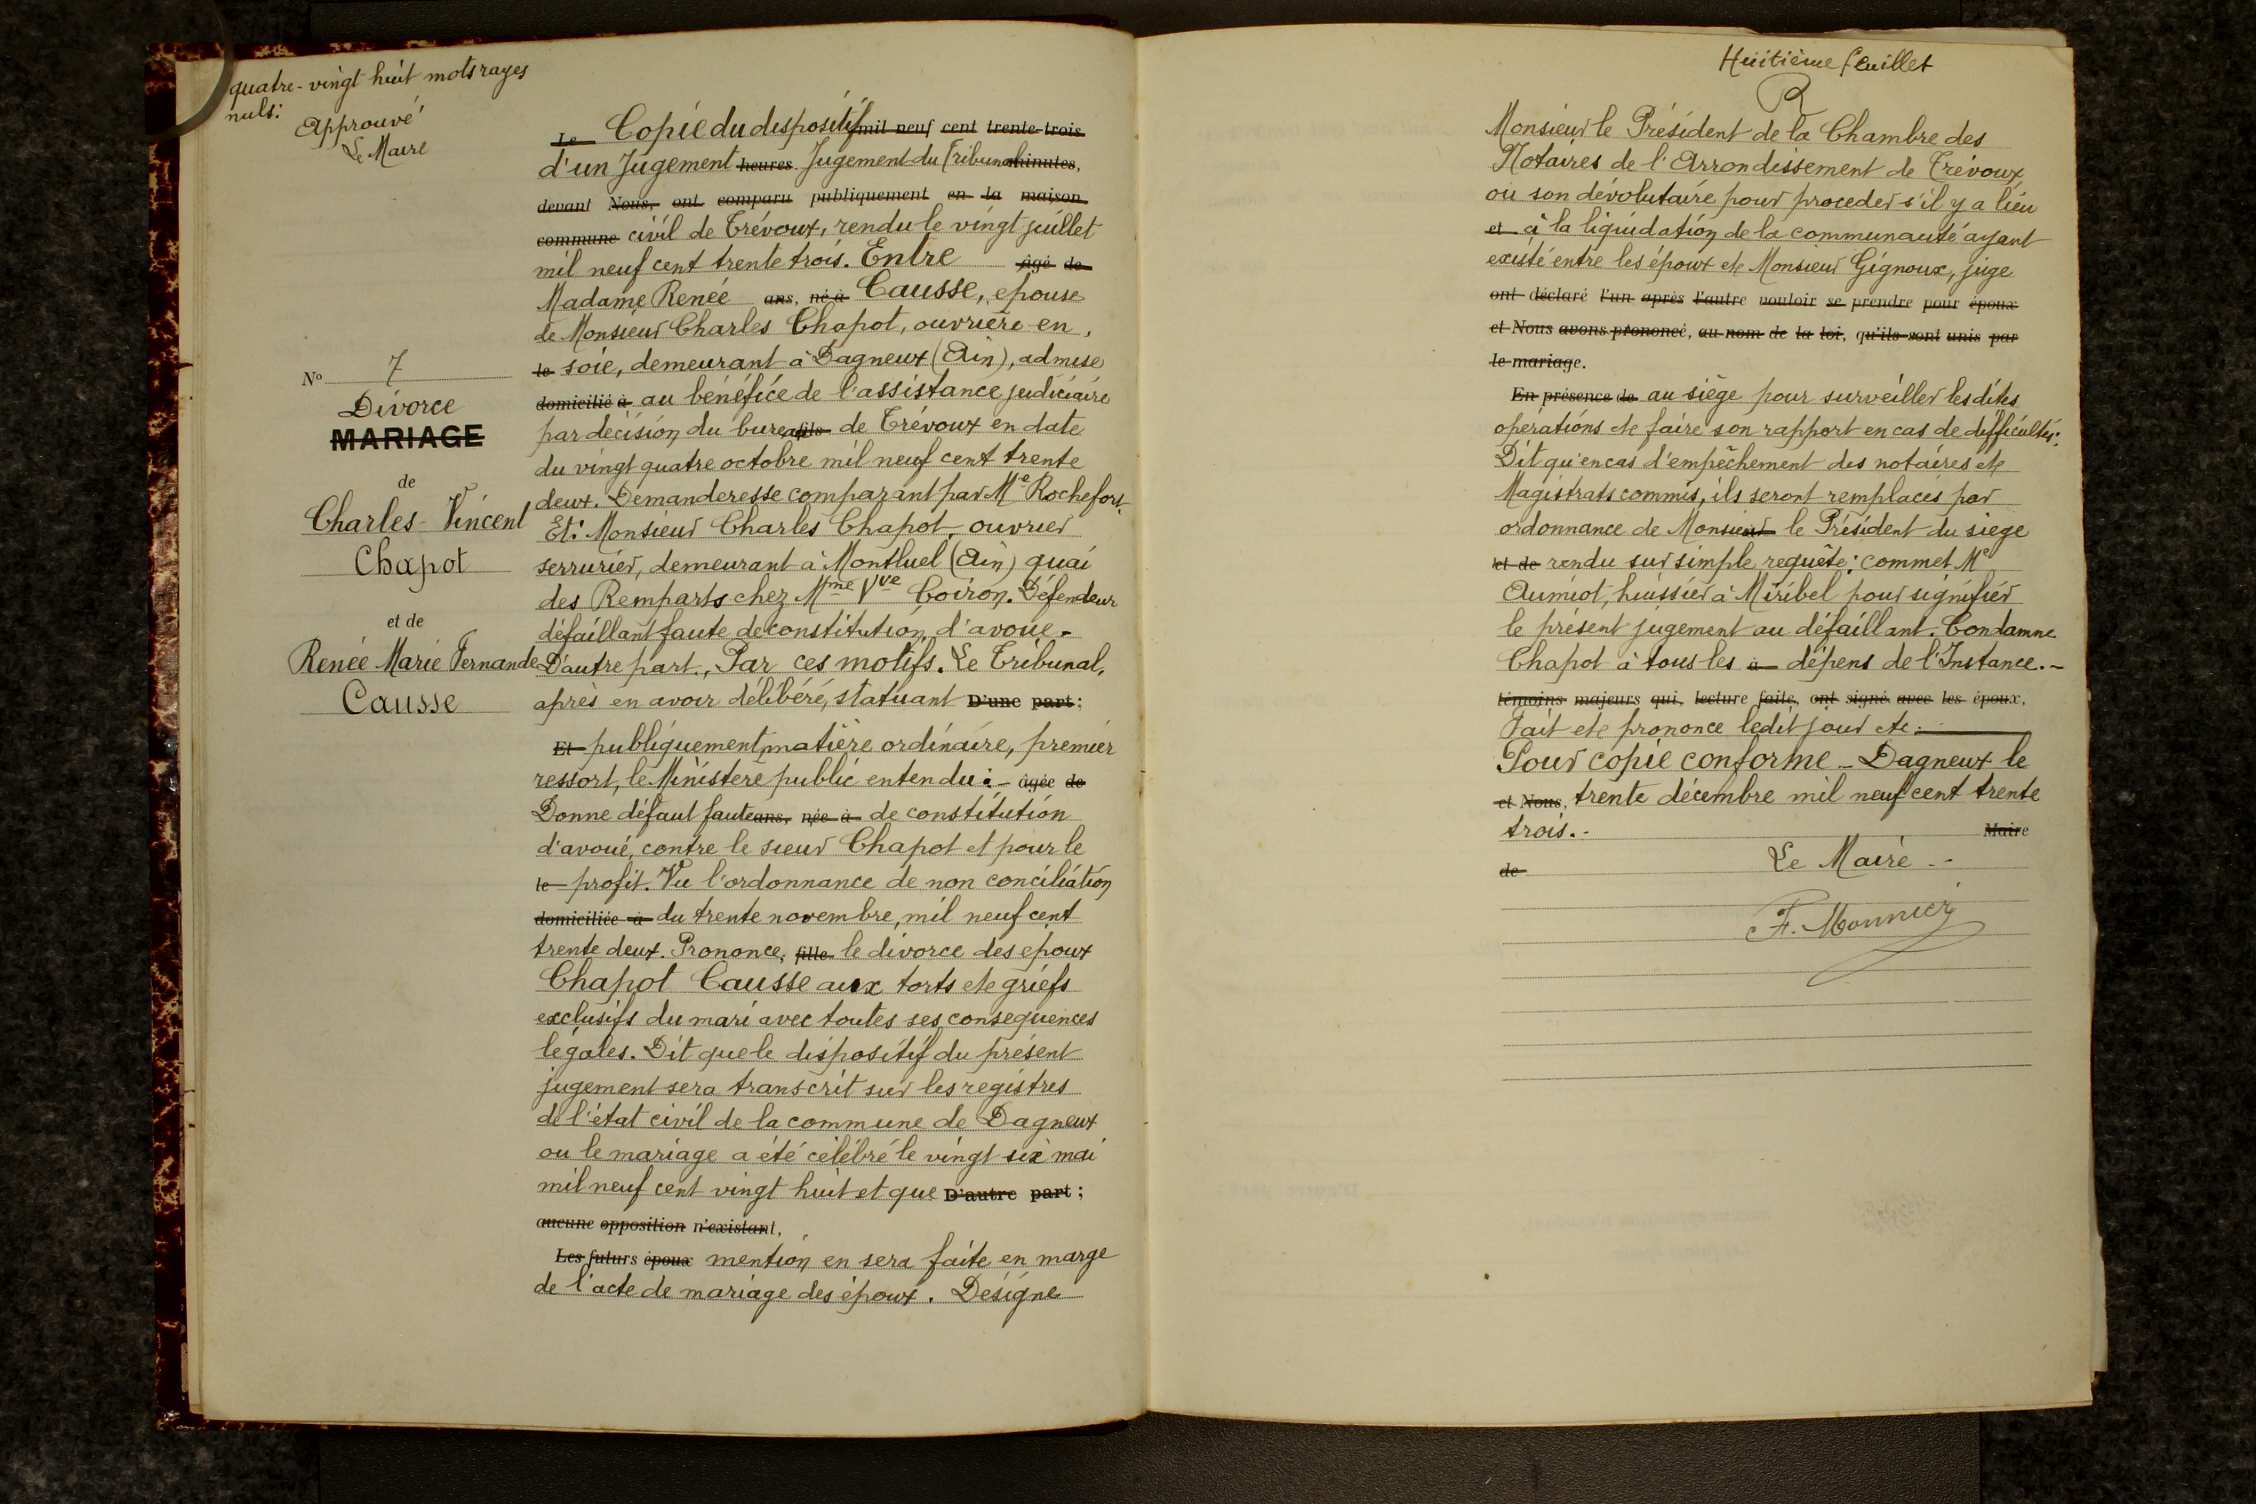 quatre-vingt huit mots rayes
nuls:
Approuvé
Le Maire
Nº 7
Divorce
MARIAGE
de
Charles-Vincent
Chapot
et de
Renée Marie Fernande
Causse
Le Copie du dispositif mil neuf cent trente-trois
d'un Jugement heures Jugement du Tribunal minutes,
devant Nous, ont comparu publiquement en la maison
commune civil de Trévoux, rendu le vingt juillet
mil neuf cent trente trois. Entre âgé de
Madame Renée ans, né à Causse, epouse
de Monsieur Charles Chapot, ouvrière en,
le soie, demeurant à Dagneux (Ain), admise
domicilié à au bénéfice de l'assistance judiciaire
par décision du bureau fils de Trévoux en date
du vingt quatre octobre mil neuf cent trente
deux. Demanderesse comparant par Me Rochefort.
Et: Monsieur Charles Chapot, ouvrier
serrurier, demeurant à Montluel (Ain) quai
des Remparts chez Mme Vve Coiron. Défendeur
défaillant faute de constitution d'avoué.-
D'autre part., Par ces motifs. Le Tribunal,
après en avoir délibéré, statuant D'une part:
Et publiquement, matière ordinaire, premier
ressort, le Ministère public entendu:- âgée de
Donne défaut faute ans, née à de constitution
d'avoué, contre le sieur Chapot et pour le
le profit. Vu l'ordonnance de non conciliation
domiciliée à du trente novembre, mil neuf cent
trente deux. Prononce, fille le divorce des epoux
Chapot Causse aux torts et griefs
exclusifs du mari avec toutes ses consequences
légales. Dit que le dispositif du présent
jugement sera transcrit sur les registres
de l'état civil de la commune de Dagneux
ou le mariage a été célébré le vingt six mai
mil neuf cent vingt huit et que D'autre part;
aucune opposition n'existant,
Les futurs époux mention en sera faite en marge
de l'acte de mariage des époux. Désigne
Huitième feuillet
R
Monsieur le Président de la Chambre des
Notaires de l'Arrondissement de Trévoux
ou son dévolutaire pour proceder s'il y a lieu
et à la liquidation de la communauté ayant
existé entre les époux et Monsieur Gignoux, juge
ont déclaré l'un après l'autre vouloir se prendre pour époux
et Nous avons prononcé, au nom de la loi, qu'ils sont unis par
le mariage.
En présence de au siège pour surveiller lesdites
opérations et faire son rapport en cas de difficultés:
Dit qu'en cas d'empêchement des notaires et
Magistrats commis, ils seront remplacés par
ordonnance de Monsieur le Président du siege
et de rendu sur simple requête: commet Me
Aumiot, huissier à Miribel pour signifier
le présent jugement au défaillant. Condamne
Chapot à tous les à dépens de l'Instance.-
témoins majeurs qui, lecture faite, ont signé avec les époux,
Fait et prononce ledit jour etc:
Pour copie conforme - Dagneux le
et Nous, trente décembre mil neuf cent trente
trois.- Maire
de Le Maire -
F. Monnier